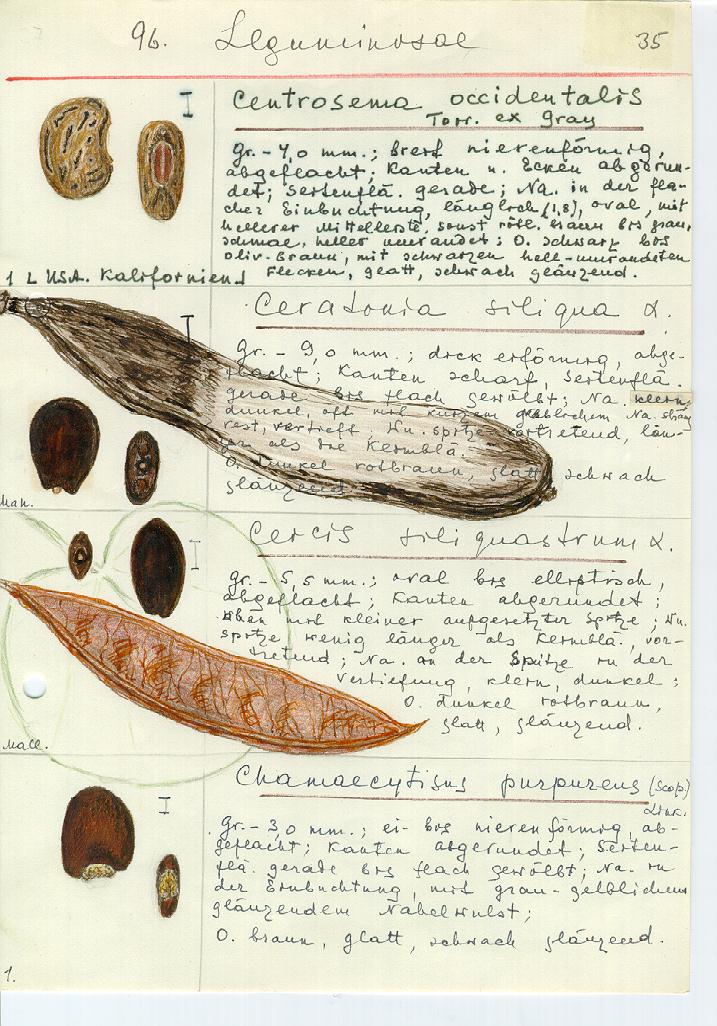 96. Leguminosae 35
Centrosema occidentalis
Torr. ex Gray
gr. - 4,0 mm.; breit nierenförmig,
abgeflacht; Kanten u. Ecken abgerun-
det; Seitenflä. gerade; Na. in der fla-
chen Einbuchtung, länglich (1,8), oval, mit
hellerer Mittelleiste, sonst rötl. braun bis grau,
schmal, heller umrandet; O. schwarz bis
oliv-braun, mit schwarzen hell-umrandeten
Flecken, glatt, schwach glänzend.
1 L USA. Kalifornien
Ceratonia siliqua L.
gr. - 9,0 mm.; dick eiförmig, abge-
flacht; Kanten scharf, Seitenflä.
gerade bis flach gewölbt; Na. klein,
dunkel, oft mit kurzem gelblichem Na. strang
rest, vertieft Wu. spitze vortretend, län-
ger als die Keimblä.
O. dunkel rotbraun, glatt, schwach
glänzend.
Man.
Cercis siliquastrum L.
gr. - 5,5 mm.; oval bis elliptisch,
abgeflacht; Kanten abgerundet;
oben mit kleiner aufgesetzter Spitze; Wu.
spitze wenig länger als Keimblä., vor-
tretend; Na. an der Spitze in der
Vertiefung, klein, dunkel;
O. dunkel rotbraun,
glatt, glänzend.
Mall.
Chamaecytisus purpureus (Scop.)
Link.
gr. - 3,0 mm.; ei- bis nierenförmig, ab-
geflacht; Kanten abgerundet; Seiten-
flä. gerade bis flach gewölbt; Na. in
der Einbuchtung, mit grau-gelblichem
glänzendem Nabelwulst;
O. braun, glatt, schwach glänzend.
1.